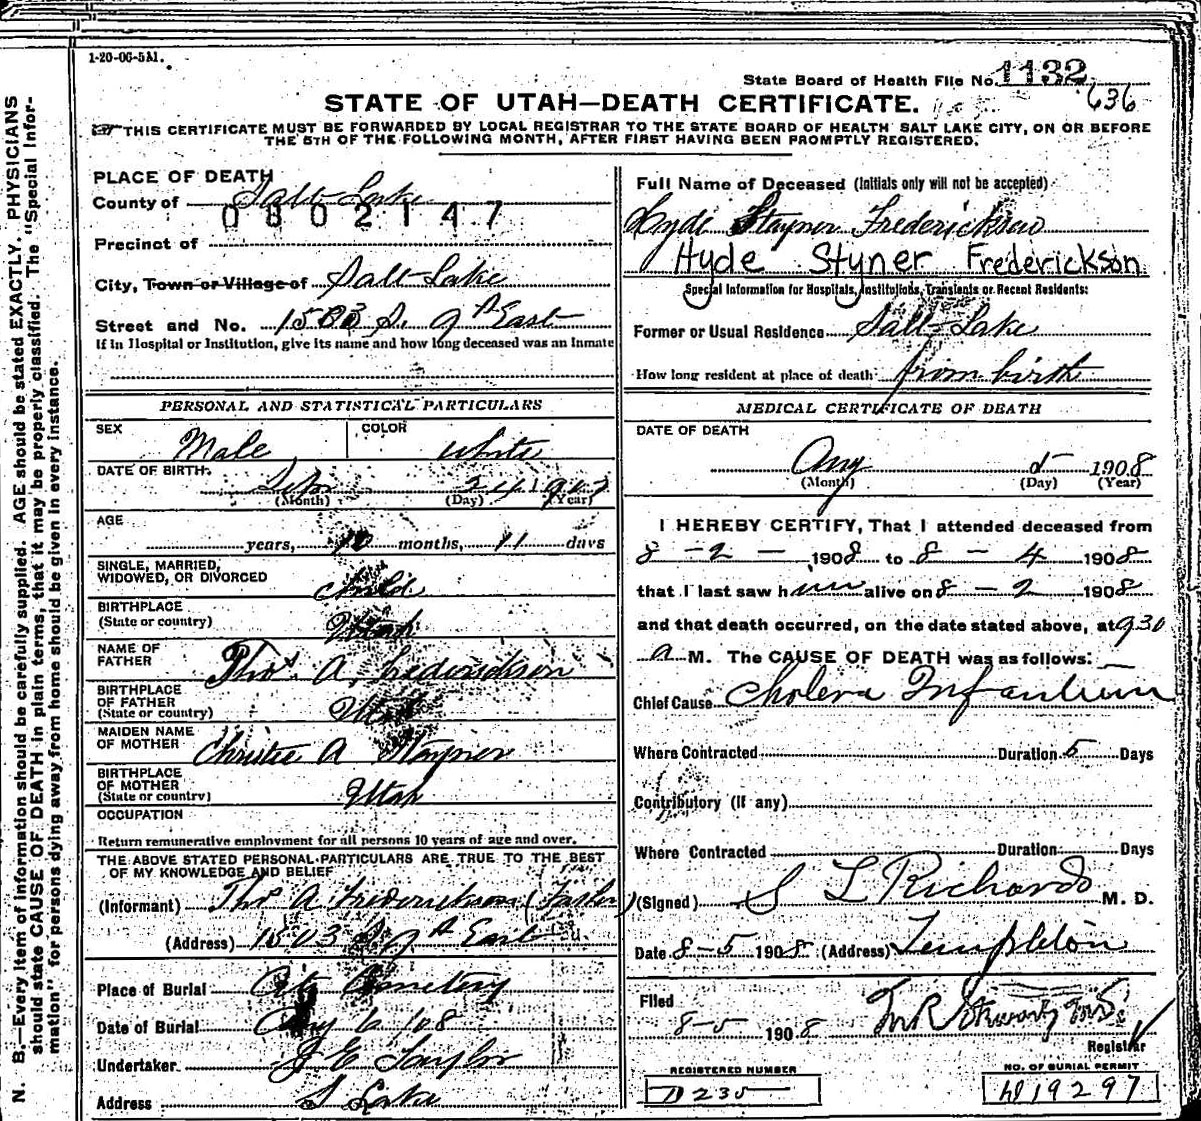 1-20-06-5M.
State Board of Health File No. 1132
636
STATE OF UTAH—DEATH CERTIFICATE.
THIS CERTIFICATE MUST BE FORWARDED BY LOCAL REGISTRAR TO THE STATE BOARD OF HEALTH SALT LAKE CITY, ON OR BEFORE
THE 5TH OF THE FOLLOWING MONTH, AFTER FIRST HAVING BEEN PROMPTLY REGISTERED.
N. B.—Every item of information should be carefully supplied. AGE should be stated EXACTLY. PHYSICIANS
should state CAUSE OF DEATH in plain terms, that it may be properly classified. The "Special Infor-
mation" for persons dying away from home should be given in every instance.
PLACE OF DEATH
County of Salt Lake
0802147
Precinct of
City, Town or Village of Salt Lake
Street and No. 1503 S. 9th East
If in Hospital or Institution, give its name and how long deceased was an inmate
PERSONAL AND STATISTICAL PARTICULARS
SEX Male COLOR White
DATE OF BIRTH Sept 24 1907
(Month) (Day) (Year)
AGE
years, 10 months, 11 days
SINGLE, MARRIED,
WIDOWED, OR DIVORCED Child
BIRTHPLACE
(State or country) Utah
NAME OF
FATHER Thos. A. Frederickson
BIRTHPLACE
OF FATHER
(State or country) Utah
MAIDEN NAME
OF MOTHER Christie A Stayner
BIRTHPLACE
OF MOTHER
(State or country) Utah
OCCUPATION
Return remunerative employment for all persons 10 years of age and over.
THE ABOVE STATED PERSONAL PARTICULARS ARE TRUE TO THE BEST
OF MY KNOWLEDGE AND BELIEF
(Informant) Thos A Frederickson (Father)
(Address) 1503 S 9th East
Place of Burial City Cemetery
Date of Burial Aug 6 '08
Undertaker J E Taylor
Address S Lake
Full Name of Deceased (Initials only will not be accepted)
Hyde Stayner Frederickson
Hyde Styner Frederickson
Special Information for Hospitals, Institutions, Transients or Recent Residents:
Former or Usual Residence Salt Lake
How long resident at place of death from birth
MEDICAL CERTIFICATE OF DEATH
DATE OF DEATH
Aug 5 1908
(Month) (Day) (Year)
I HEREBY CERTIFY, That I attended deceased from
8 - 2 - 1908 to 8 - 4 1908
that I last saw him alive on 8 - 2 1908
and that death occurred, on the date stated above, at 930
a M. The CAUSE OF DEATH was as follows:
Chief Cause Cholera Infantum
Where Contracted Duration 5 Days
Contributory (if any)
Where Contracted Duration Days
(Signed) S L Richards M. D.
Date 8-5 1908 (Address) Templeton
Filed
8-5 1908
Registrar
REGISTERED NUMBER
D235
NO. OF BURIAL PERMIT
19297